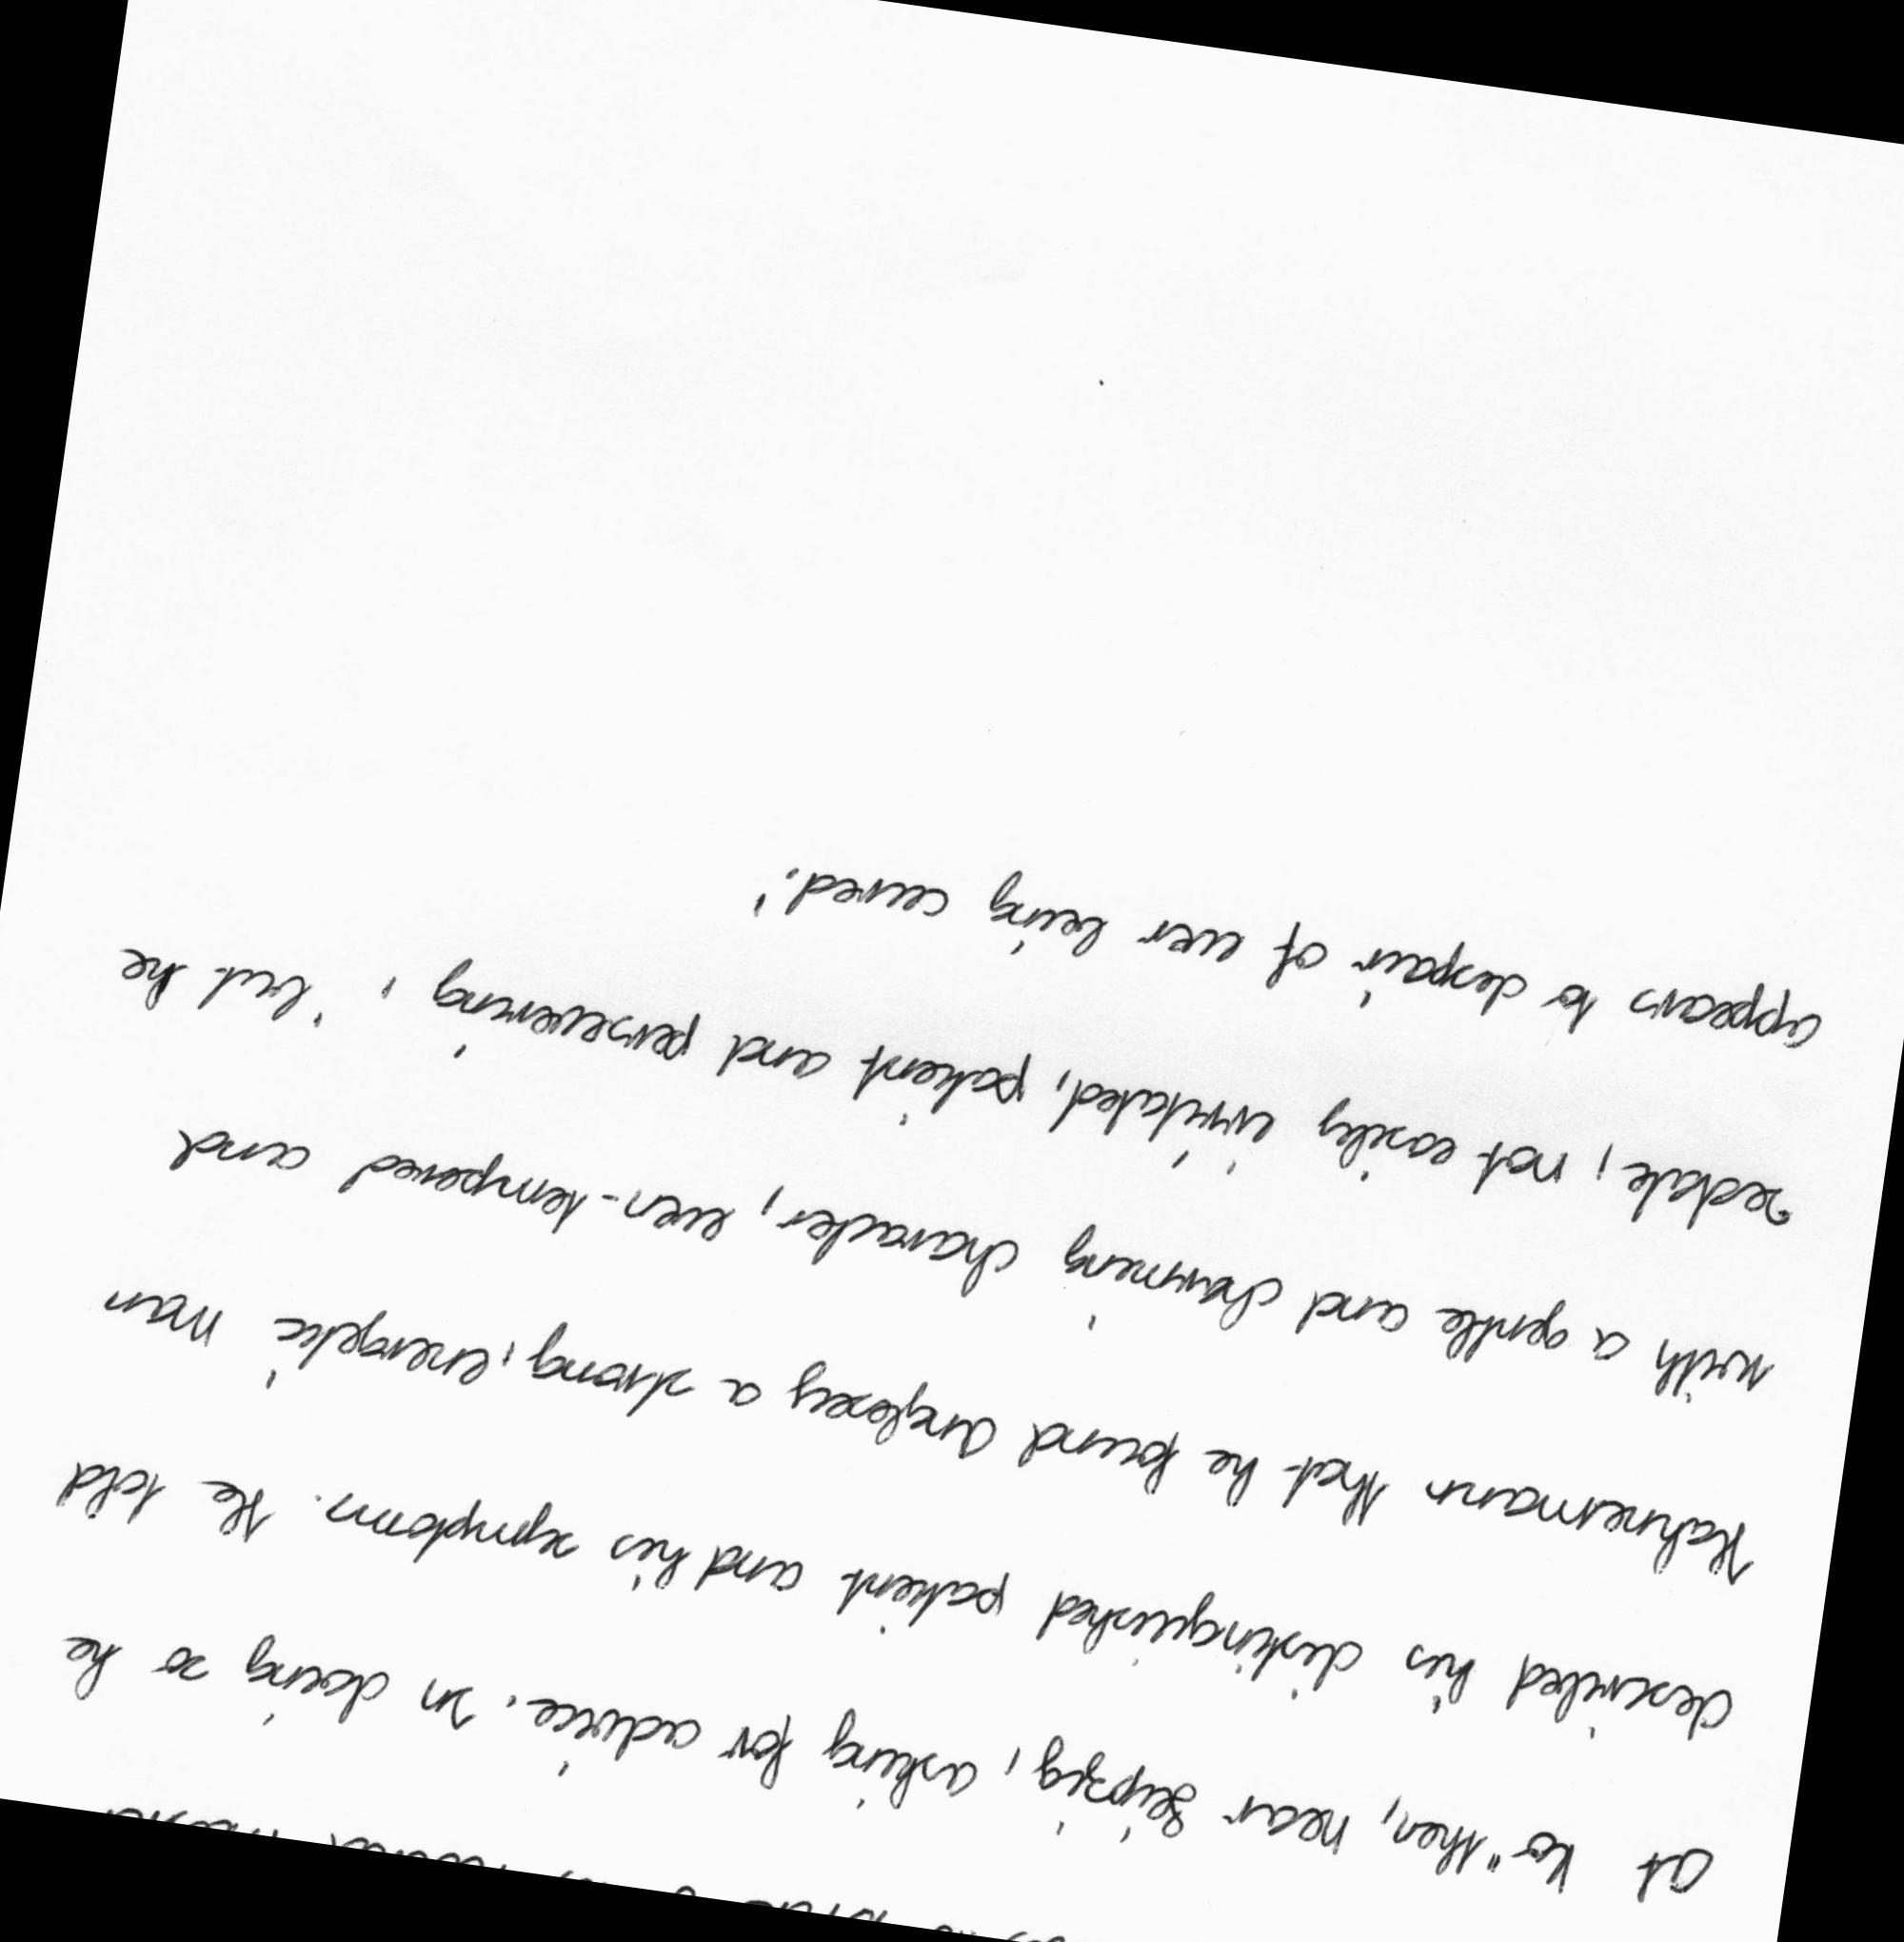 at Kö"then, near Leipzig, asking for advice. In doing so he
described his distinguished patient and his symptoms. He told
Hahnemann that he found Anglesey a strong, energetic man
with a gentle and charming character, even-tempered and
sedate, not easily irritated, patient and persevering, 'but he
appears to despair of ever being cured.'